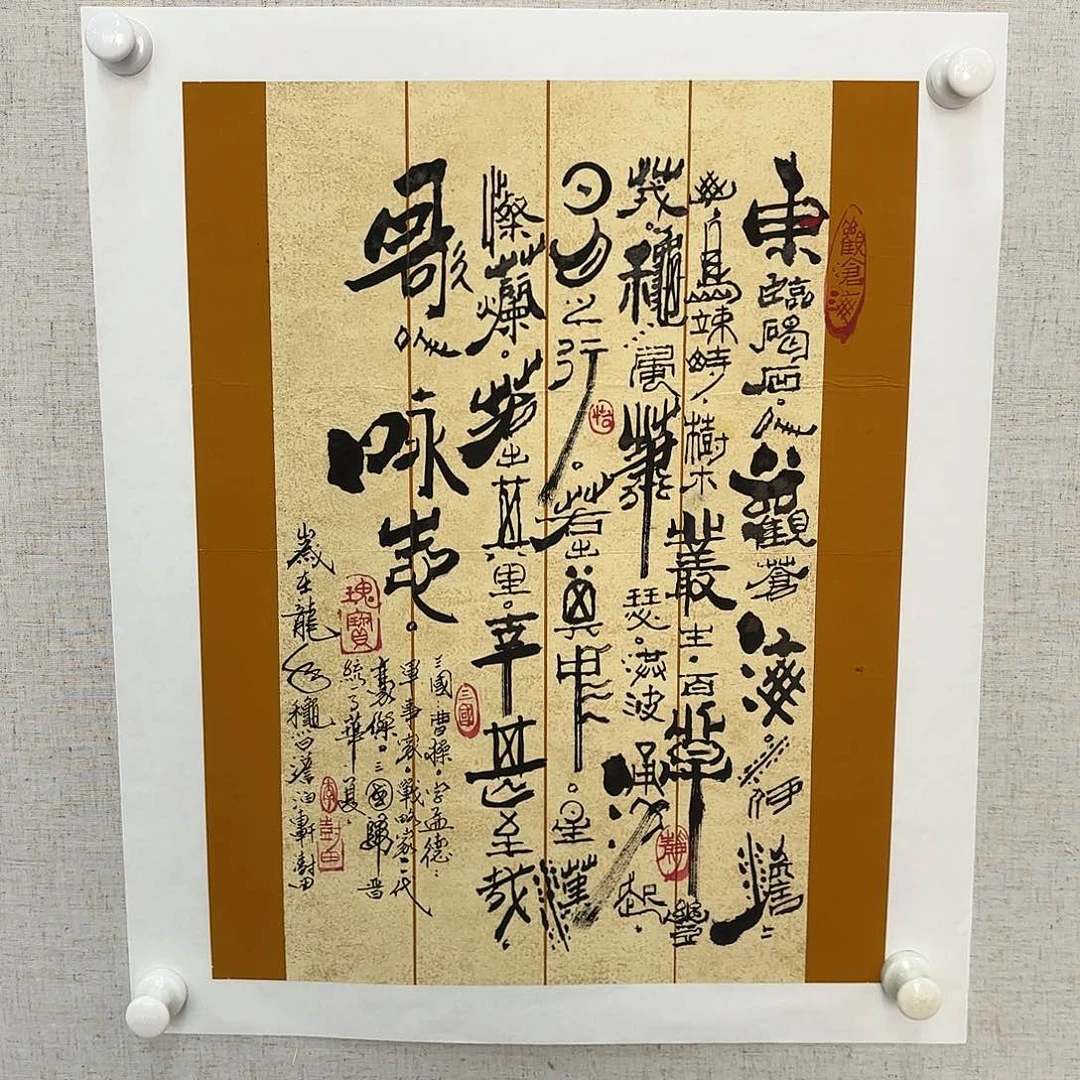 觀滄海
東臨碣石。以觀蒼海。水何澹澹
山島竦峙。樹木叢生。百草豐
茂。龝風蕭瑟。洪波涌起
日月之行。若出其中。星漢
燦爛。若出其里。幸甚至哉
歌以咏志。
三國。曹操。字孟德
軍事家。戰略家。一代
豪傑。三國歸晉
統一華夏。
歲在龍年龝
怡
靜
三國
瑰寶